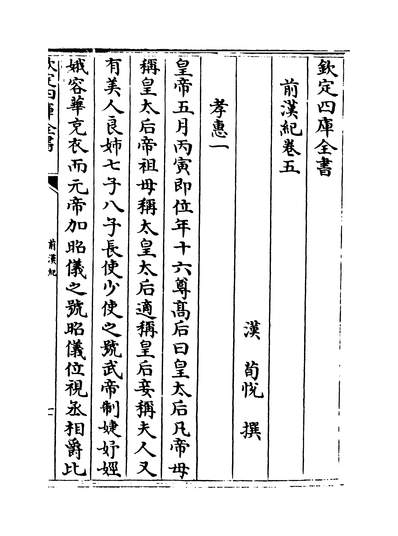 欽定四庫全書
前漢紀卷五
漢 荀悅 撰
孝惠一
皇帝五月丙寅即位年十六尊髙后曰皇太后凡帝母
稱皇太后帝祖母稱太皇太后適稱皇后妾稱夫人又
有美人良姊七子八子長使少使之號武帝制婕妤娙
娥容華充衣而元帝加昭儀之號昭儀位視丞相爵比
欽定四庫全書
前漢紀